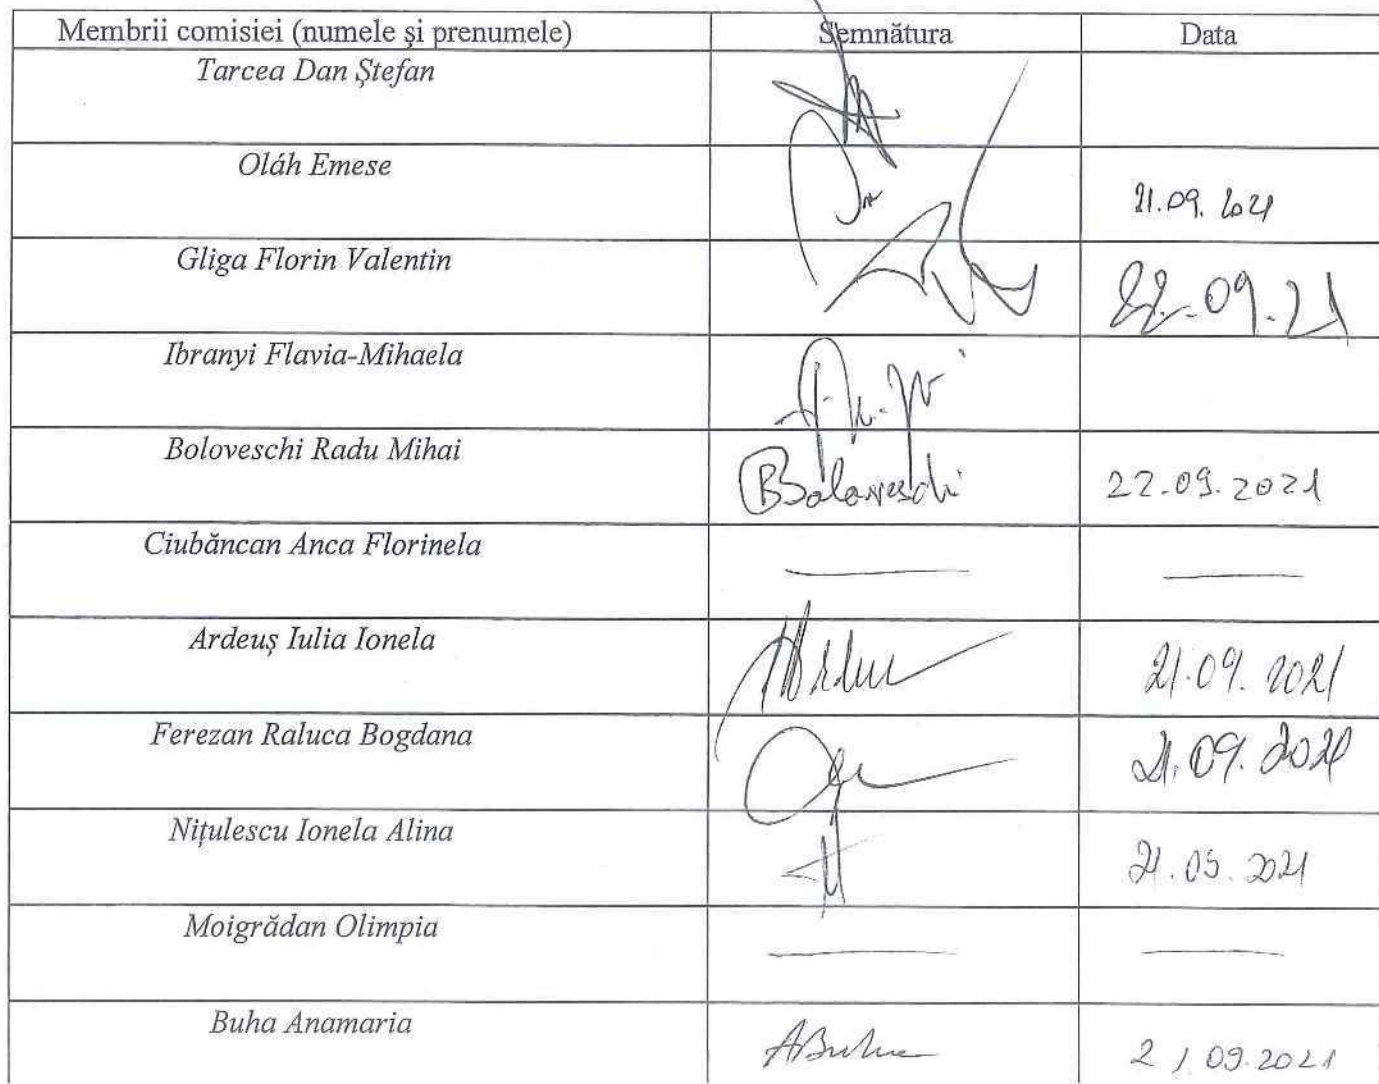 Membrii comisiei (numele și prenumele) Semnătura Data
Tarcea Dan Ștefan
Oláh Emese 21.09.2021
Gliga Florin Valentin 22.09.21
Ibranyi Flavia-Mihaela
Boloveschi Radu Mihai Boloveschi 22.09.2021
Ciubăncan Anca Florinela
Ardeuș Iulia Ionela 21.09.2021
Ferezan Raluca Bogdana 21.09.2021
Nițulescu Ionela Alina 21.09.2021
Moigrădan Olimpia
Buha Anamaria ABuha 21.09.2021